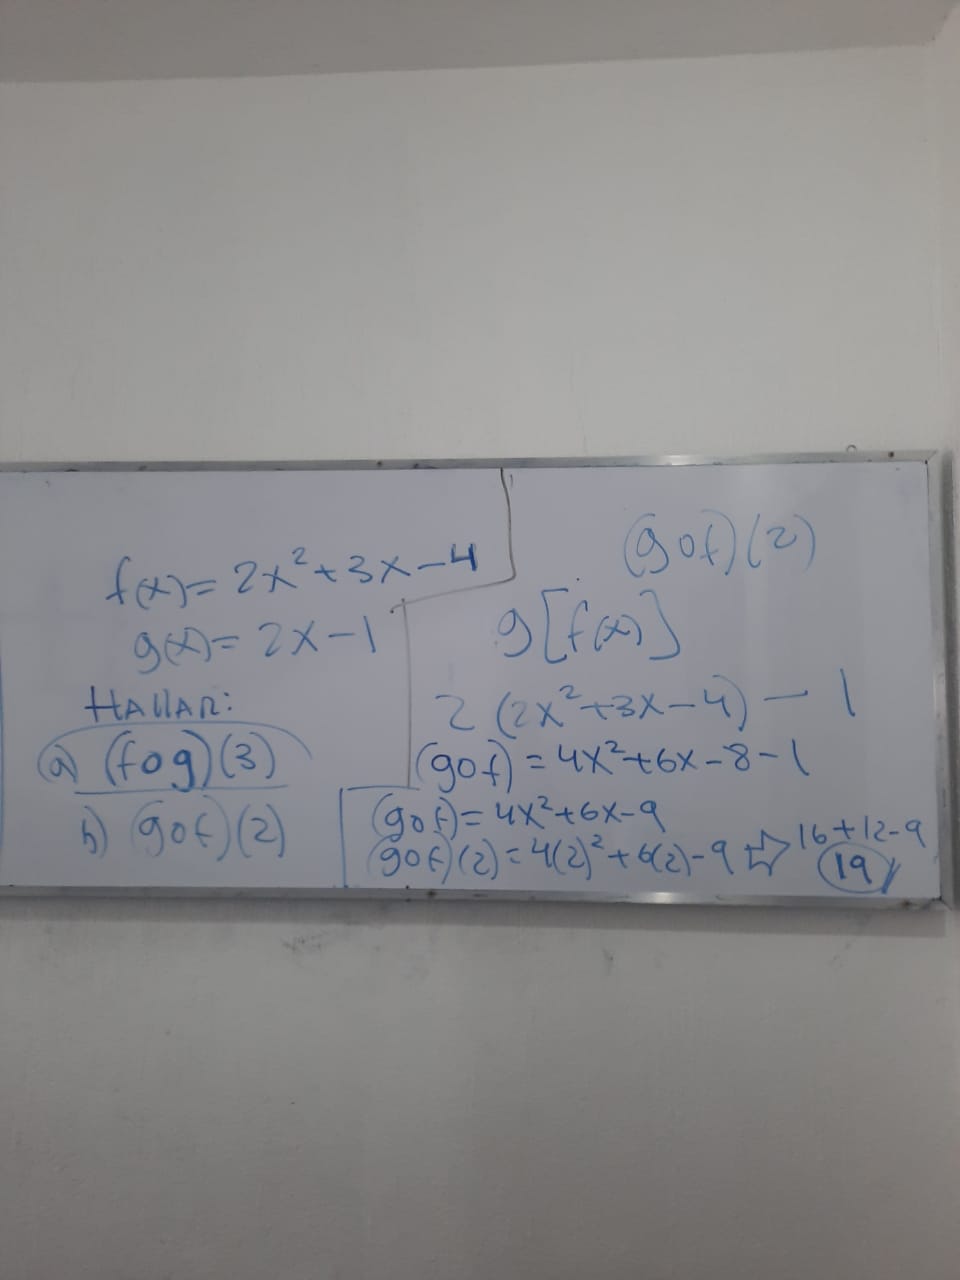 f(x)= 2x²+3x-4
g(x)= 2x-1
HALLAR:
a) (fog)(3)
b) (gof)(2)
(gof)(2)
g[f(x)]
2 (2x²+3x-4) - 1
(gof) = 4x²+6x-8-1
(gof)= 4x²+6x-9
(gof)(2) = 4(2)²+6(2)-9 ⇨ 16+12-9
19